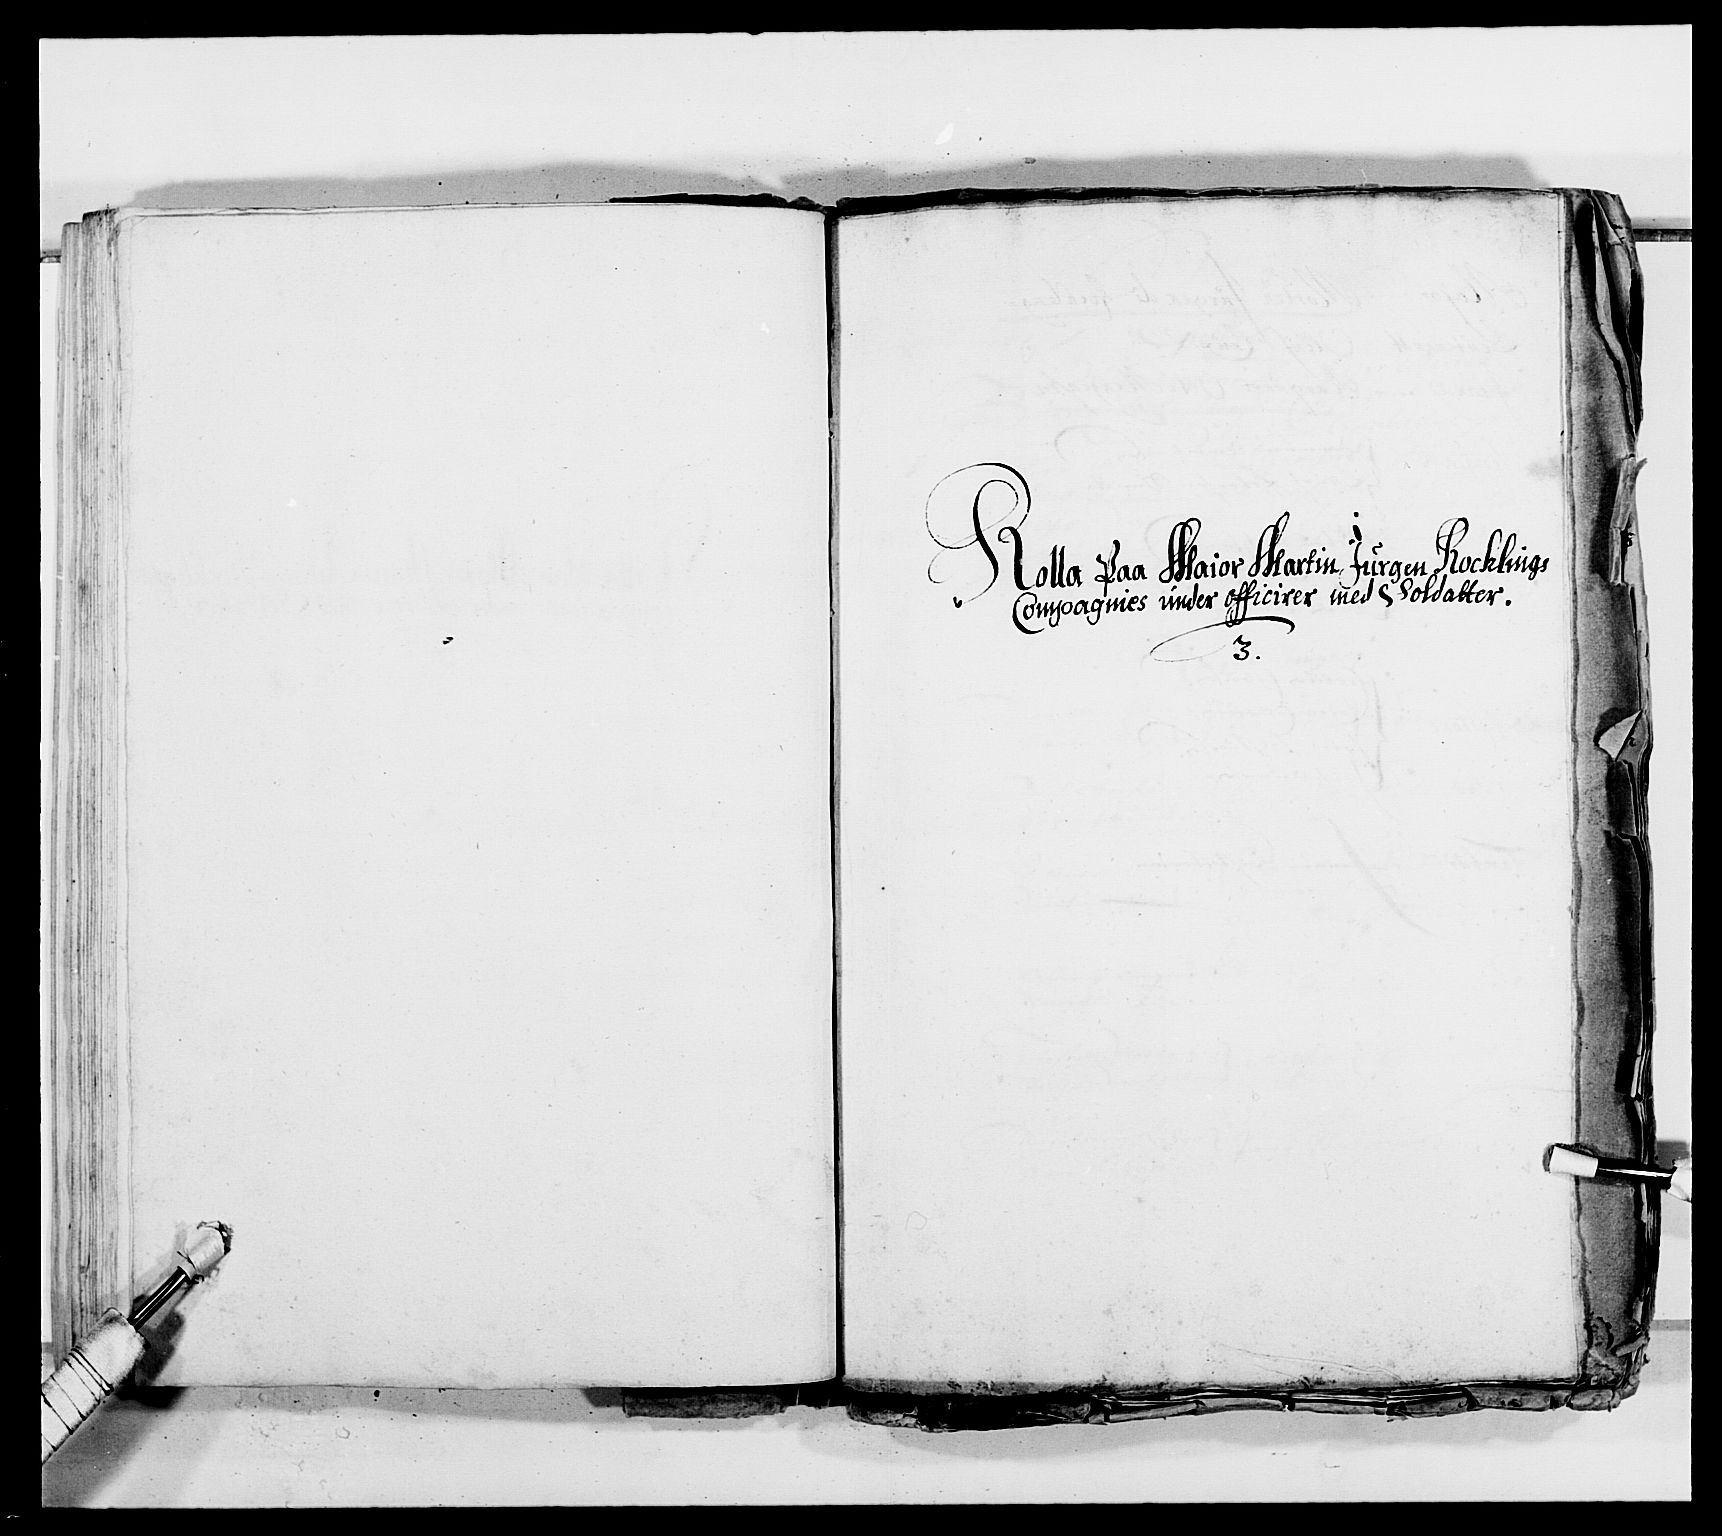 Rolla Paa Maior Martin Jürgen Rocklings
Compagnies under officirer med Soldatter.
3.